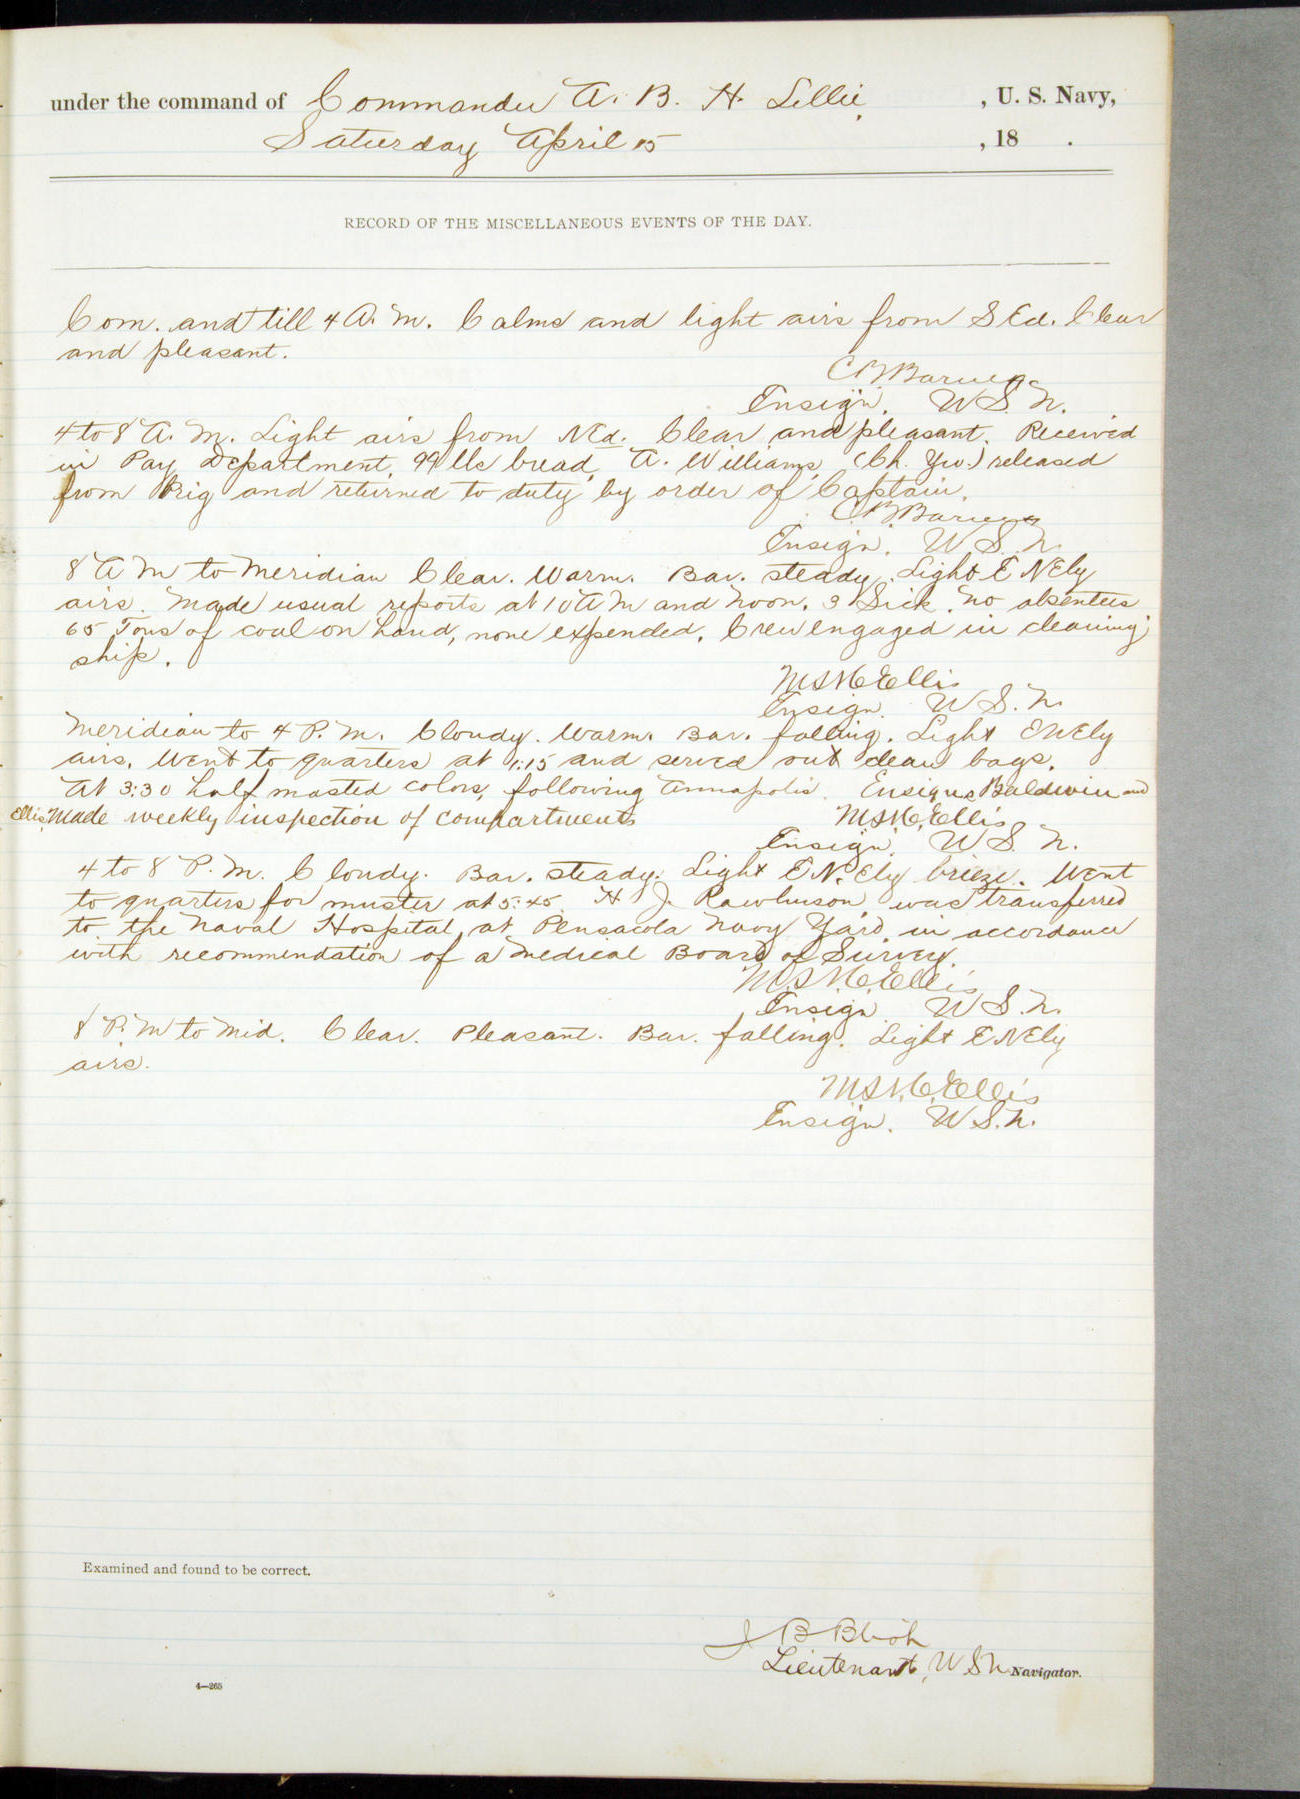 under the command of Commander A. B. H. Lillie, , U. S. Navy,
Saturday April 15 , 18 .
RECORD OF THE MISCELLANEOUS EVENTS OF THE DAY.
Com. and till 4 A. M. Calms and light airs from S Ed. Clear
and pleasant.
C B Barnes
Ensign. U. S. N.
4 to 8 A. M. Light airs from NEd. Clear and pleasant. Received
in Pay Department, 99 lbs bread. A. Williams, (Ch. Yeo.) released
from Brig and returned to duty by order of Captain.
C B Barnes
Ensign. U. S. N.
8 A M to Meridian Clear. Warm. Bar. steady. Light E NEly
airs. Made usual reports at 10 A M and Noon. 3 Sick. No absentees
65 Tons of coal on hand, none expended. Crew engaged in cleaning
ship.
M S McEllis
Ensign. U. S. N.
Meridian to 4 P. M. Cloudy. Warm. Bar. falling. Light ENEly
airs. Went to quarters at 1:15 and served out clean bags.
At 3:30 half masted colors, following Annapolis. Ensigns Baldwin and
Ellis Made weekly inspection of compartments
M S M. Ellis
Ensign. U. S. N.
4 to 8 P. M. Cloudy. Bar. steady. Light E N. Ely breeze. Went
to quarters for muster at 5:45. H J. Rawlinson was transferred
to the Naval Hospital at Pensacola Navy Yard in accordance
with recommendation of a Medical Board of Survey.
M. S M. Ellis
Ensign U. S. N.
8 P. M to Mid. Clear. Pleasant. Bar. falling. Light E NEly
airs.
M. S M. Ellis
Ensign. U. S. N.
Examined and found to be correct.
J B Blish
Lieutenant, U S N Navigator.
4—265